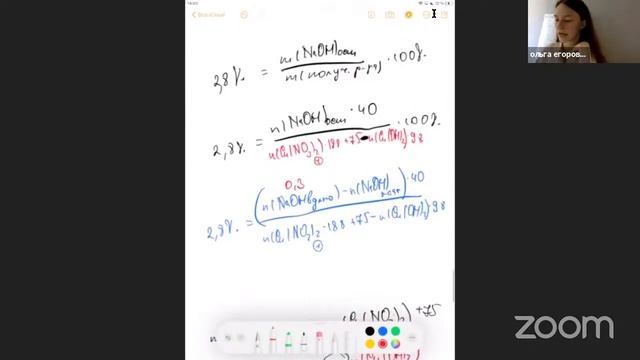 Все iCloud
ольга егоров...
2,8%. = m(NaOH)ост / m(получ. р-ра) · 100%.
2,8%. = n(NaOH)ост · 40 / n(Cu(NO3)2) · 188 + 75 - n(Cu(OH)2) · 98 · 100%.
0,3
2,8%. = (n(NaOH)дано) - n(NaOH)) · 40 / n(Cu(NO3)2 · 188 + 75 - n(Cu(OH)2) · 98
(NO3)2) + 75
zoom